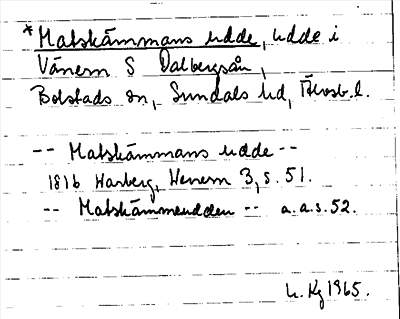 *Matskämmans udde, udde i
Vänern S Dalbergsån,
Bolstads sn, Sundals hd, Älvsb.l.
-- Matskämmans udde --
1816 Warberg, Wenern 3, s. 51.
-- Matskämmeudden -- a.a.s. 52.
Kg 1965.